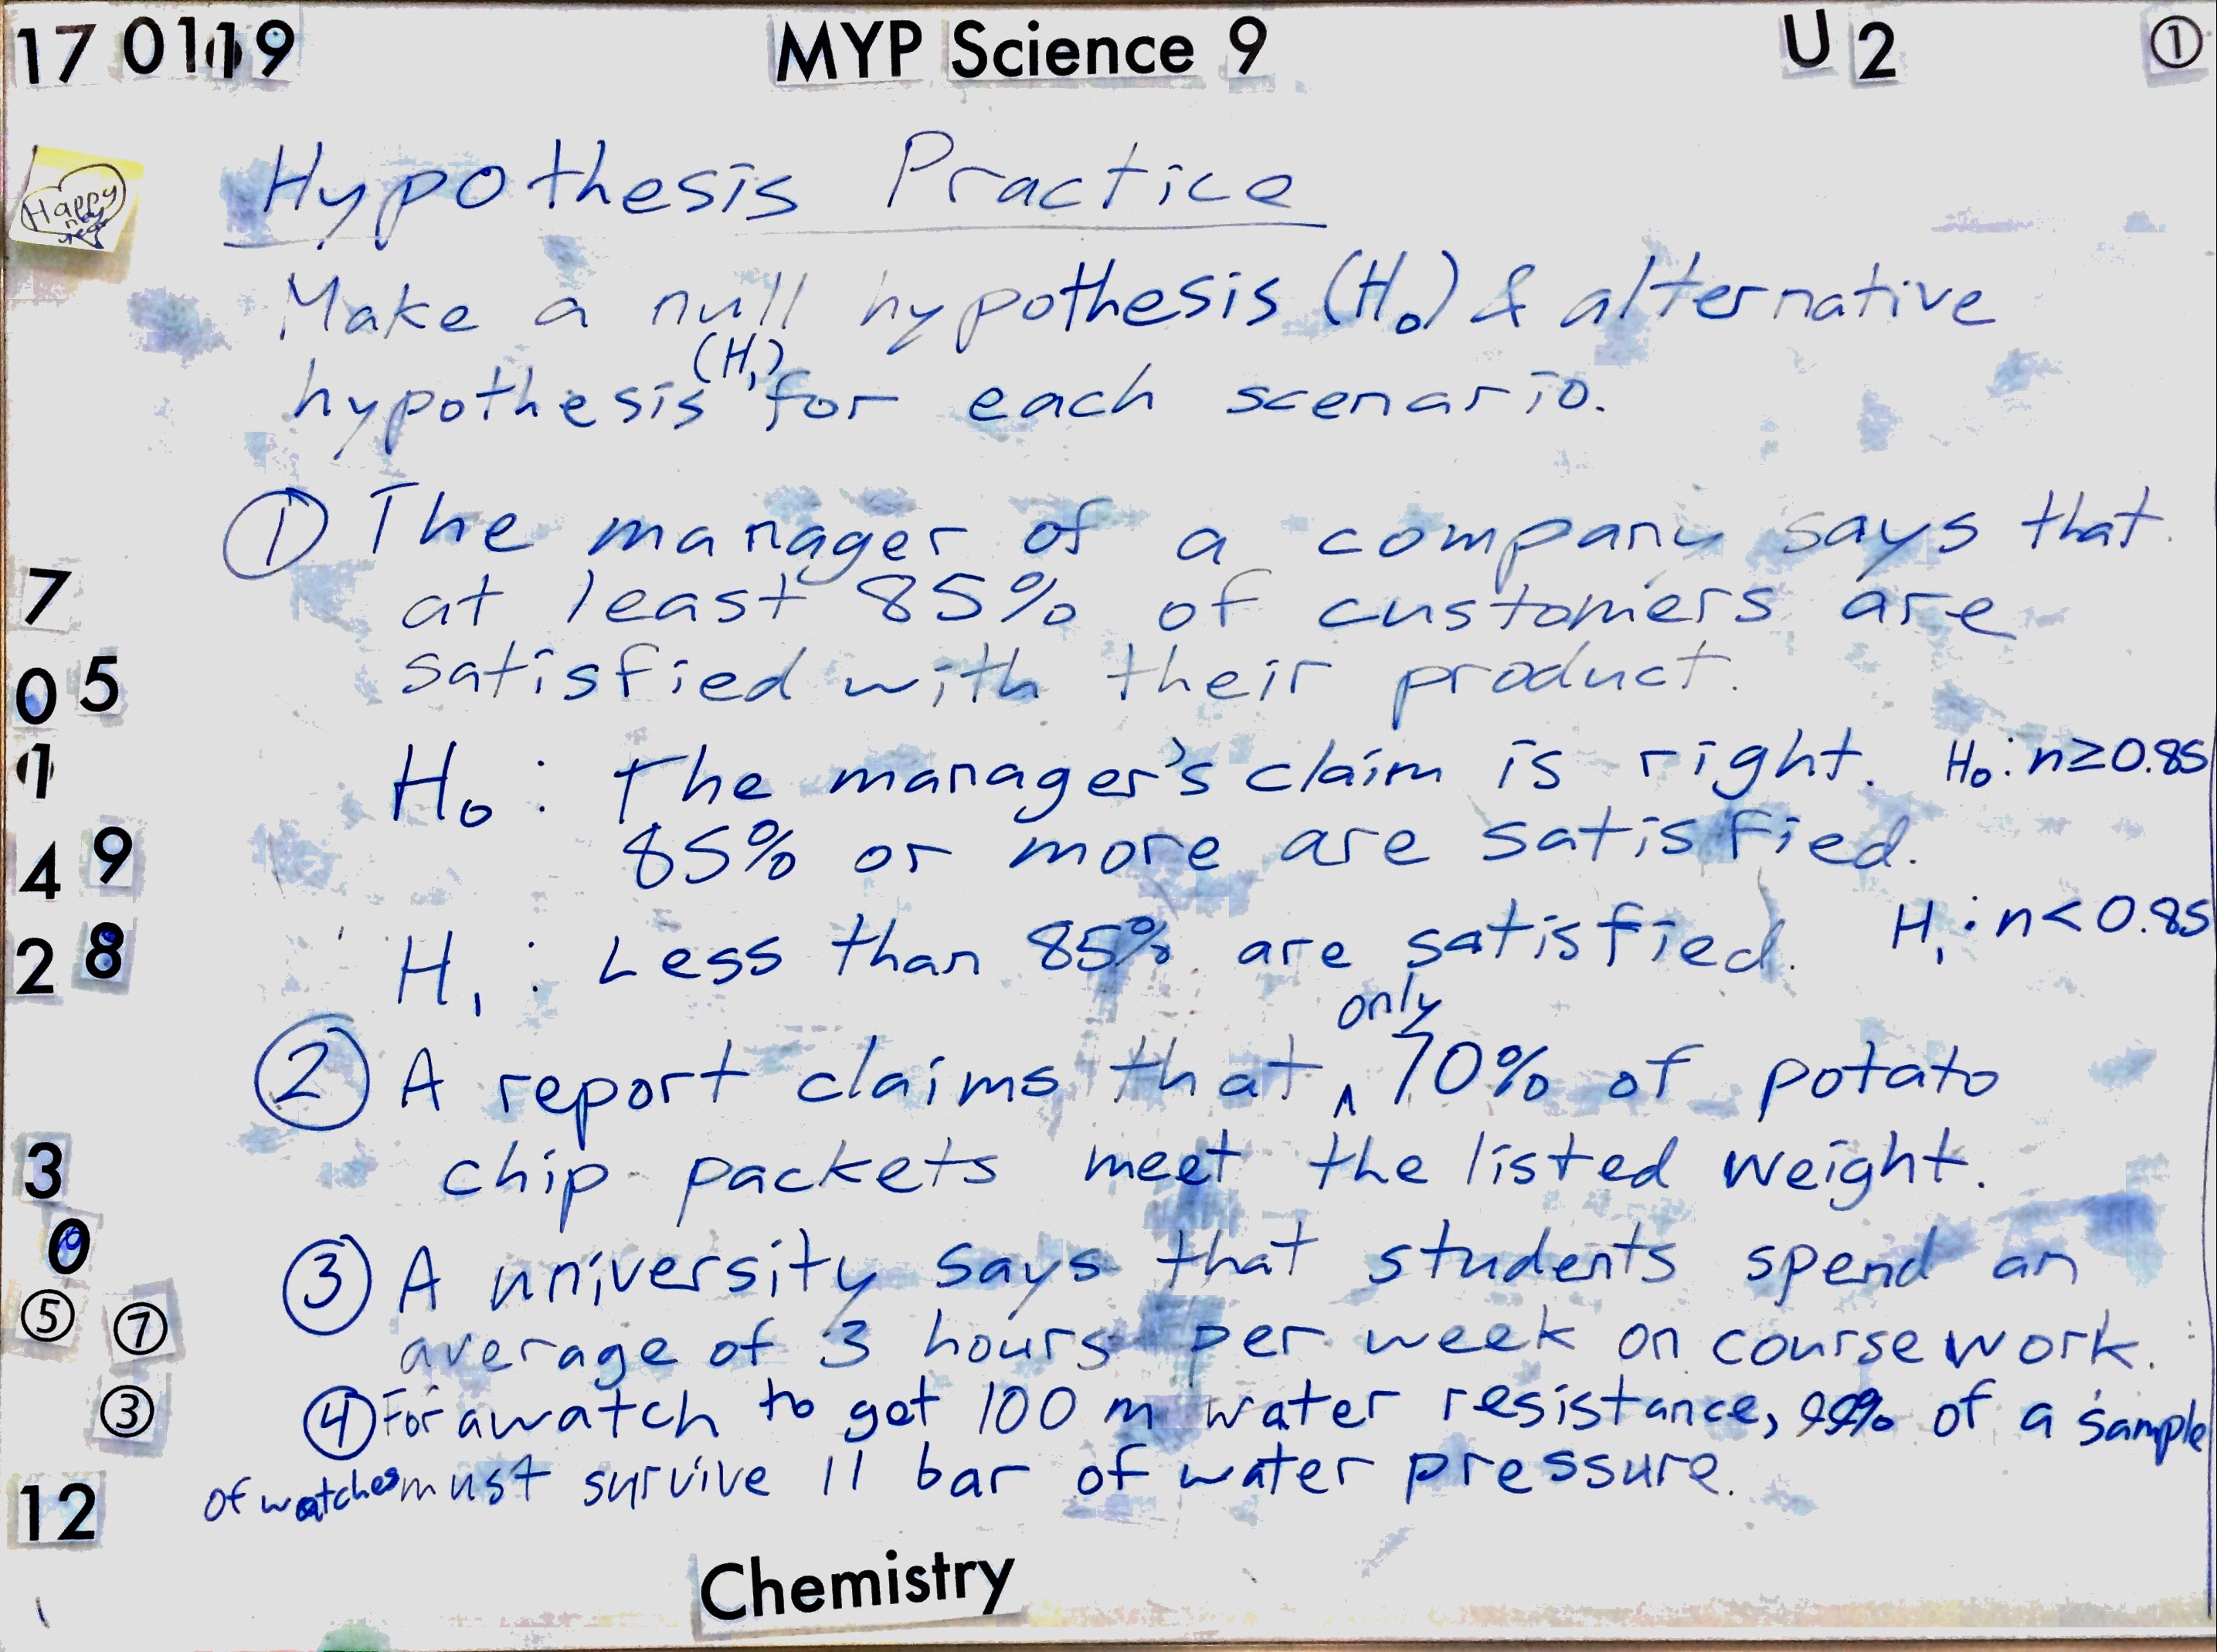 17 01119 MYP Science 9 U 2 ①
Happy
new
year
Hypothesis Practice
Make a null hypothesis (H₀) & alternative
hypothesis (H₁) for each scenario.
① The manager of a company says that
at least 85% of customers are
satisfied with their product.
H₀ : The manager's claim is right. H₀: n≥0.85
85% or more are satisfied.
H₁ : Less than 85% are satisfied. H₁: n<0.85
② A report claims that only 70% of potato
chip packets meet the listed weight.
③ A university says that students spend an
average of 3 hours per week on course work.
④ For a watch to get 100 m water resistance, 99% of a sample
of watches must survive 11 bar of water pressure.
7
0 5
1
4 9
2 8
3
0
⑤ ⑦
③
12
Chemistry